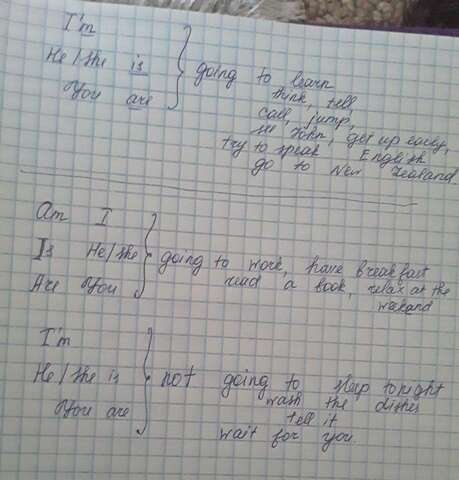 I'm
He/she is
You are
going to learn
think, tell,
call, jump,
see John, get up early,
try to speak English
go to New Zealand.
Am I
Is He/she
Are You
going to work, have breakfast
read a book, relax at the
weekand
I'm
He/she is
You are
not going to sleep tonight
wash the dishes
tell it
wait for you